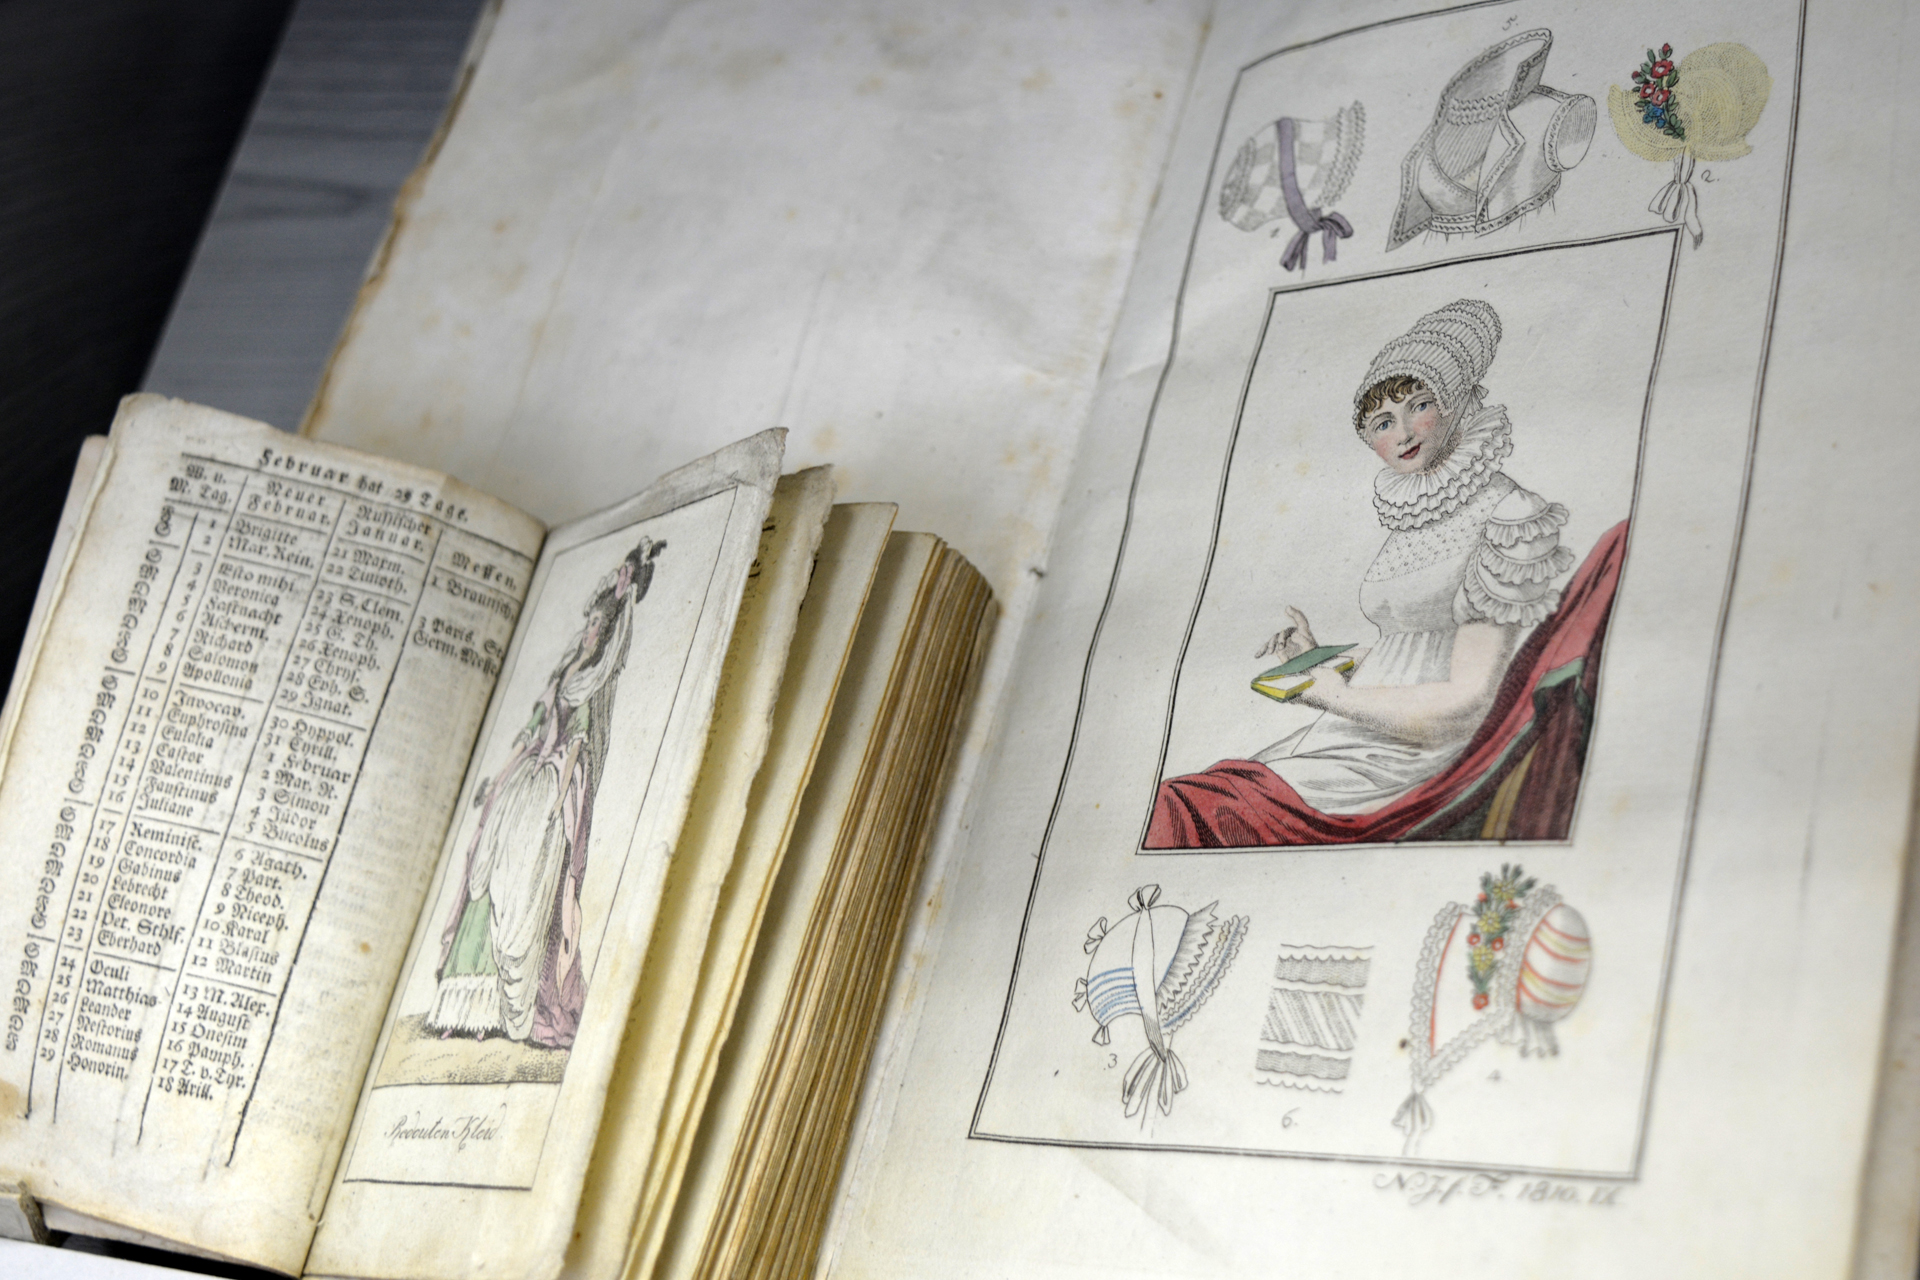 Februar hat 29 Tage.
W. u. M. Tag. | Neuer Februar. | Russischer Januar. | Messen.
S 1 Brigitte 21 Maxm. 1. Braunschw.
S 2 Mar. Rein. 22 Timoth.
S 3 Esto mihi. 23 S. Clem. 3 Paris. St.
M 4 Veronica 24 Xenoph. Germ. Messe.
D 5 Fastnacht 25 G. Th.
M 6 Ascherm. 26 Xenoph.
D 7 Richard 27 Chrys.
F 8 Salomon 28 Eph. S.
S 9 Apollonia 29 Ignat.
S 10 Invocav. 30 Hyppol.
M 11 Euphrosina 31 Cyrill.
D 12 Eulalia 1 Februar
M 13 Castor 2 Mar. R.
D 14 Valentinus 3 Simon
F 15 Faustinus 4 Isidor
S 16 Juliane 5 Bucolus
S 17 Reminisc. 6 Agath.
M 18 Concordia 7 Part.
D 19 Gabinus 8 Theod.
M 20 Lebrecht 9 Niceph.
D 21 Eleonore 10 Karal
F 22 Pet. Schlf. 11 Blasius
S 23 Eberhard 12 Martin
S 24 Oculi 13 M. Alex.
M 25 Matthias 14 August
D 26 Leander 15 Onesim
M 27 Nestorius 16 Pamph.
D 28 Romanus 17 T. v. Tyr.
F 29 Honorin. 18 Arill.
Redouten Kleid.
5.
1
2.
3
6.
4
N. J. f. F. 1810. IX